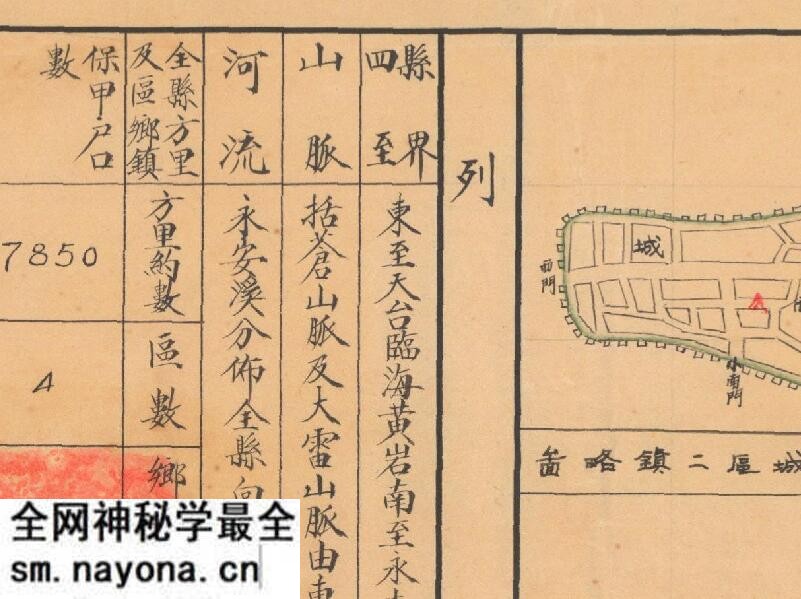 城
西門
小南門
城區二鎮略啚
列
縣界
四至
東至天台臨海黃岩南至永
山脈
括蒼山脈及大雷山脈由東
河流
永安溪分佈全縣向
全縣方里
及區鄉鎮
保甲戶口
數
方里約數
7850
區數
4
鄉
全网神秘学最全
sm.nayona.cn